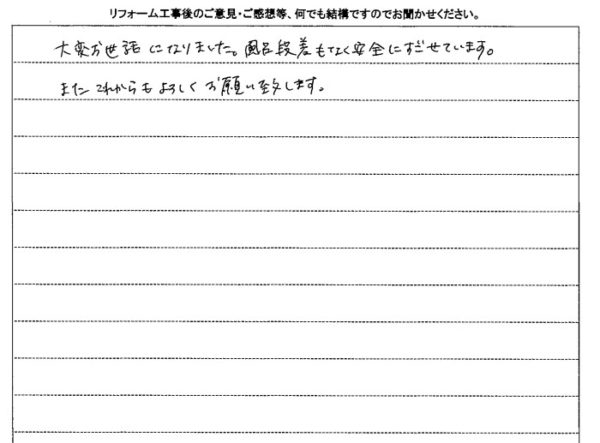 リフォーム工事後のご意見・ご感想等、何でも結構ですのでお聞かせください。
大変お世話になりました。風呂段差もなく安全にすごせています。
またこれからもよろしくお願い致します。